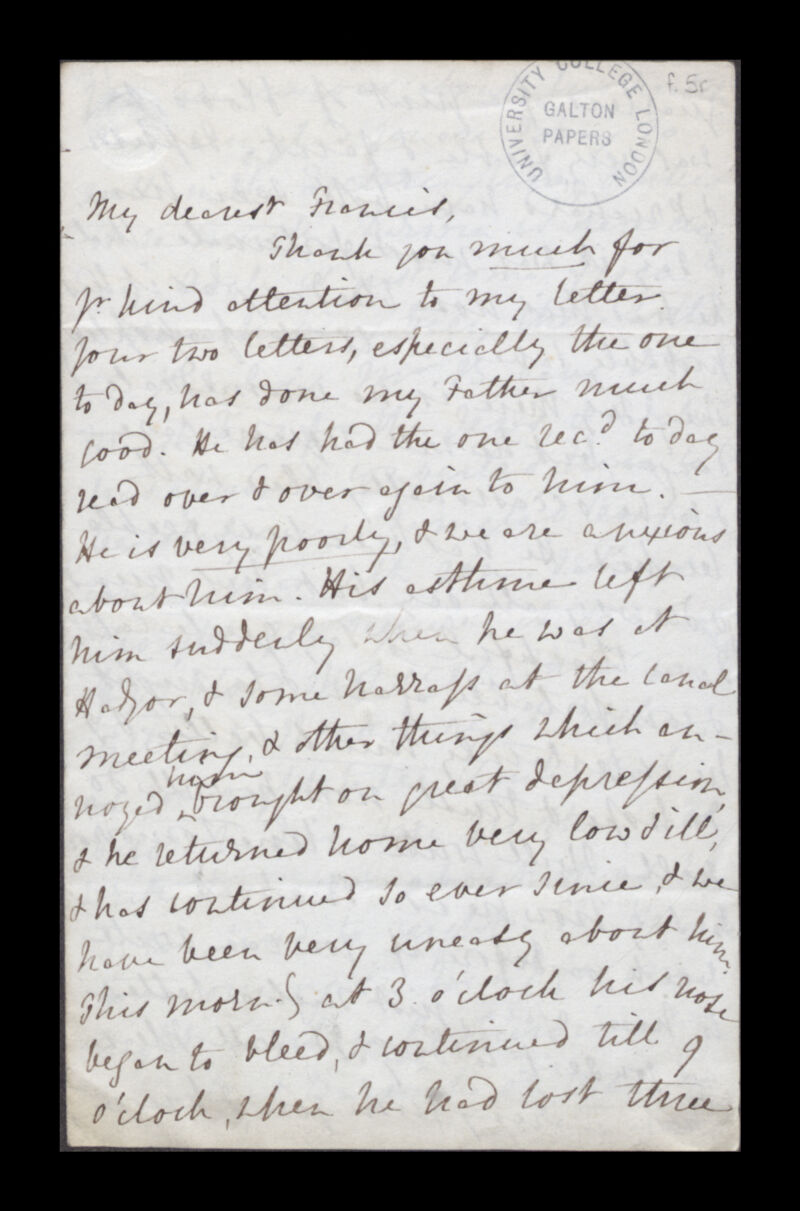 UNIVERSITY COLLEGE LONDON
GALTON
PAPERS
f. 5r
My dearest Francis,
Thank you much for
yr kind attention to my letter.
your two letters, especially the one
to day, has done my Father much
good. He has had the one recd to day
read over & over again to him. —
He is very poorly, & we are anxious
about him. His asthma left
him suddenly when he was at
Hadzor, & some harrass at the canal
meeting, & other things which an-
noyed him brought on great depression,
& he returned home very low & ill,
& has continued so ever since, & we
have been very uneasy about him.
This morng at 3 o'clock his nose
began to bleed, & continued till 9
o'clock, when he had lost three